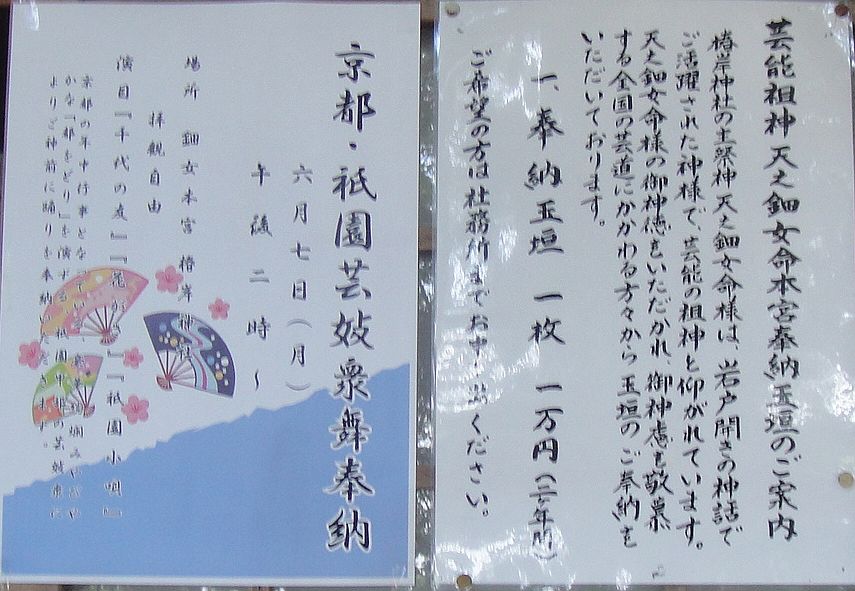 芸能祖神 天之鈿女命本宮奉納玉垣のご案内
椿岸神社の主祭神天之鈿女命様は、岩戸開きの神話で
ご活躍された神様で、芸能の祖神と仰がれています。
天之鈿女命様の御神徳をいただかれ、御神慮を敬慕
する全国の芸道にかかわる方々から玉垣のご奉納を
いただいております。
一、奉納玉垣 一枚 一万円(三ヶ年間)
ご希望の方は社務所までお申し出ください。
京都・祇園芸妓衆舞奉納
六月七日(月)
午後二時〜
場所 鈿女本宮 椿岸神社
拝観自由
演目『千代の友』『花がさ』『祇園小唄』
京都の年中行事となっている、豪華絢爛みやびや
かな「都をどり」を演ずる、祇園甲部の芸妓衆に
よりご神前に踊りを奉納いただきます。